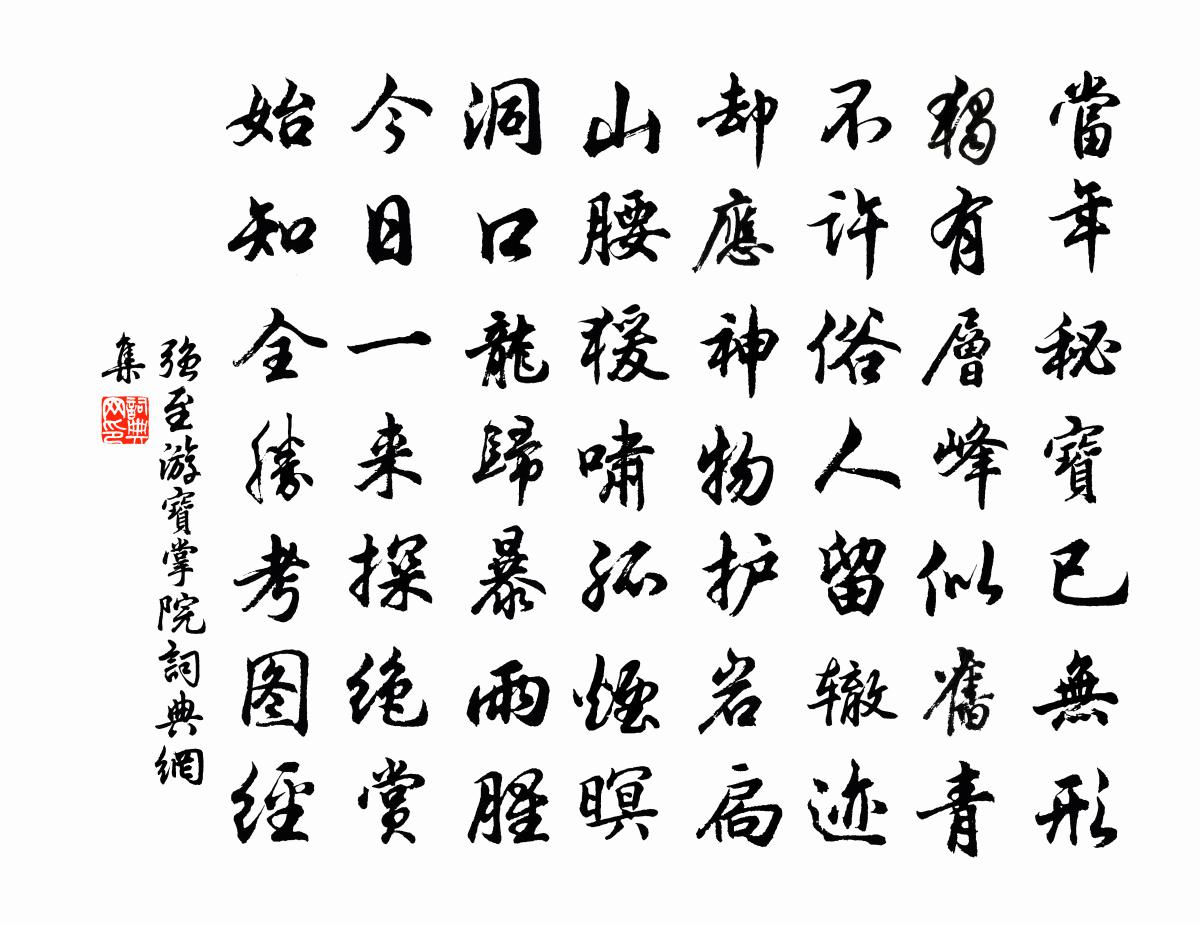 當年秘寶已無形
獨有層峰似舊青
不許俗人留辙迹
却應神物护岩扃
山腰猨嘯孤煙暝
洞口龍歸暴雨腥
今日一来探绝赏
始知全勝考图經
強至游寶掌院詞典網
集
詞典
网印